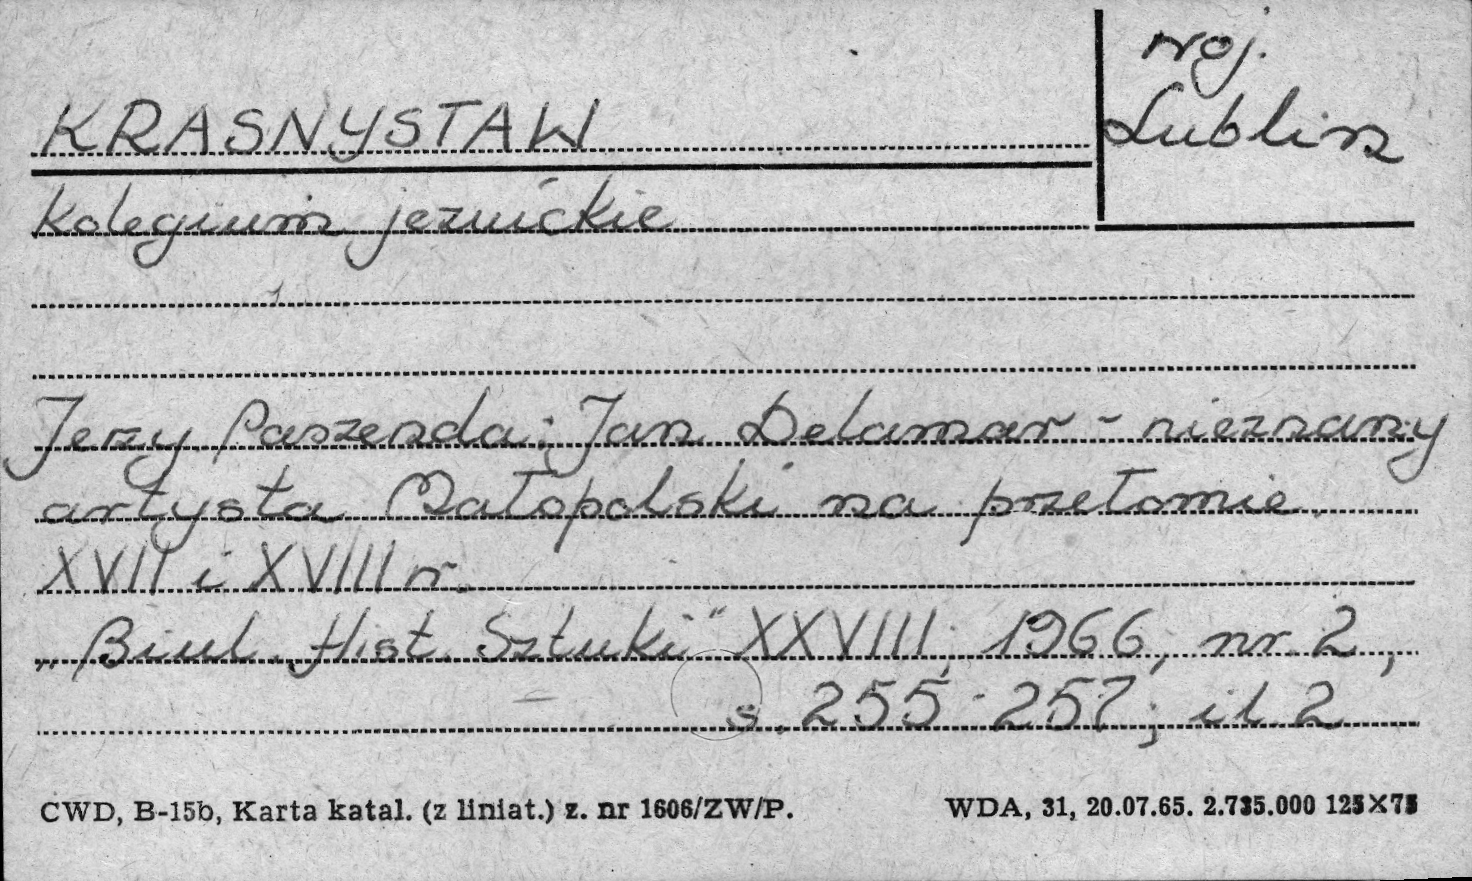 woj.
Lublin
KRASNYSTAW
Kolegium jezuickie
Jerzy Paszenda: Jan Delamar - nieznany
artysta Małopolski na przełomie
XVII i XVIII w.
„Biul. Hist. Sztuki" XXVIII, 1966, nr 2,
s. 255-257; il 2
CWD, B-15b, Karta katal. (z liniat.) z. nr 1606/ZW/P.
WDA, 31, 20.07.65. 2.735.000 125×75